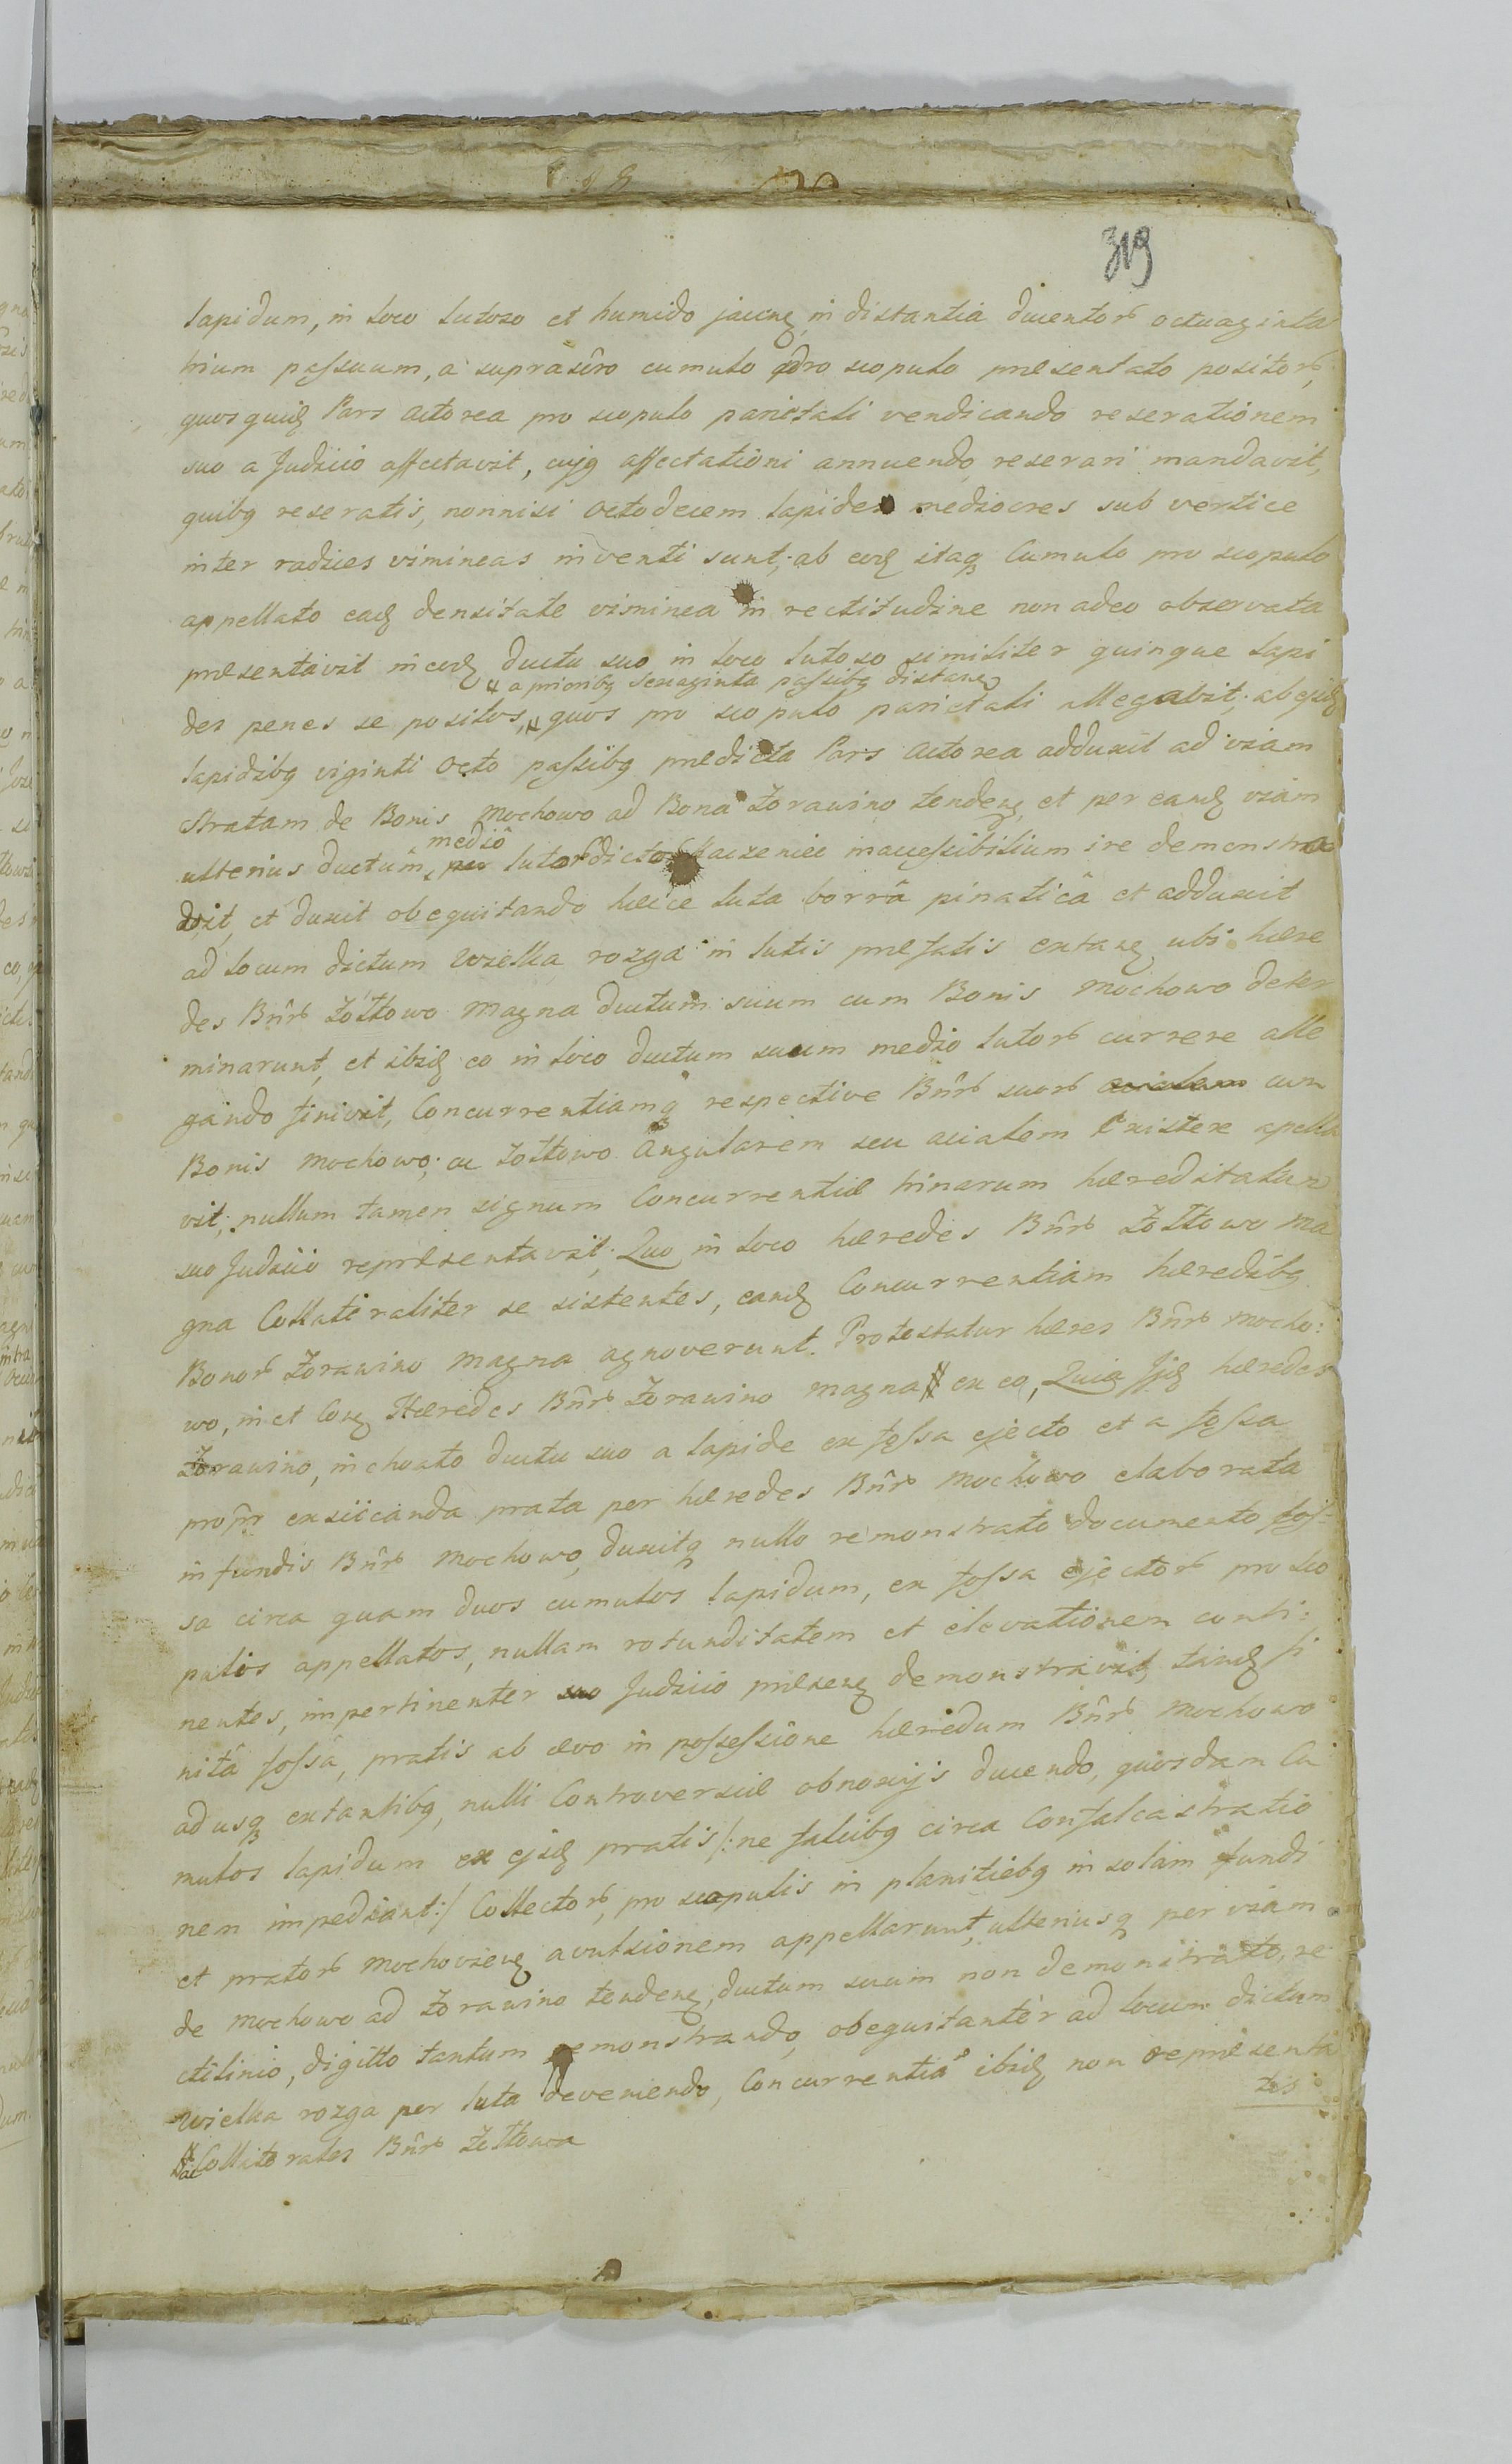 319
lapidum, in loco lutoso et humido jacenꝫ in distantia ducentorꝫ octuaginta
trium passuum, a suprascro cumulo pro scopulo præsentato positorꝫ,
quosquidꝫ Pars Actorea pro scopulo parietali vendicando reserationem
suo a Judicio affectavit, cujꝫ affectationi annuendo reserari mandavit,
quibꝫ reseratis, nonnisi octodecem lapides mediocres sub vertice
inter radices vimineas inventi sunt; ab eodꝫ itaqꝫ Cumulo pro scopulo
appellato eadꝫ densitate viminea in rectitudine non adeo observata
præsentavit in eodꝫ ductu suo in loco lutoso similiter quinque lapi
a prioribꝫ sexaginta passibꝫ distanꝫ
des penes se positos, quos pro scopulo parietali allegavit. ab ejsdꝫ
lapidibꝫ viginti octo passibꝫ prædicta Pars Actorea adduxit ad viam
stratam de Bonis Mochowo ad Bona Zorawino tendenꝫ et per eandꝫ viam
mediô
ulterius ductum, per lutorꝫ dictorꝫ Kaczeniec inaccessibilium ire demonstra
vit, et duxit obequitando hæcce luta borrâ pinaticâ et adduxit
ad locum dictum wielka rozga in lutis præfatis extanꝫ ubi hære
des Bnrꝫ Zołtowo Magna ductum suum cum Bonis Mochowo deter
minarunt, et ibidꝫ eo in loco ductum suum medio lutorꝫ currere alle
gando finivit, Concurrentiamqꝫ respective Bnrꝫ suorꝫ cum
Bonis Mochowo; ac Zołtowo Angularem seu acialem Existere apella
vit; nullum tamen signum Concurrentiæ trinarum hæreditatum
suo Judicio repræsentavit; Quo in loco hæredes Bnrꝫ Zołtowo Ma
gna Collateraliter se sistentes, eandꝫ Concurrentiam hæredibꝫ
Bonorꝫ Zorawino Magna agnoverunt. Protestatur hæres Bnrꝫ Mocho:
wo, in et Conꝫ Hæredes Bnrꝫ Zorawino Magna ex eo, Quia Jidꝫ hæredes
Zorawino, inchoato ductu suo a lapide ex fossa ejecto et a fossa
propr exsiccanda prata per hæredes Bnrꝫ Mochowo elaborata
in fundis Bnrꝫ Mochowo, duxitqꝫ nullo remonstrato documento fos:
sa circa quam duos cumulos lapidum, ex fossa ejectorꝫ pro sco
pulis appellatos, nullam rotunditatem et elevationem conti:
nentes, impertinenter suo Judicio præsenꝫ demonstravit, tandꝫ fi
nitâ fossâ, pratis ab ævo in possessione hæredum Bnrꝫ Mochowo
adusqꝫ extantibꝫ, nulli Controversiæ obnoxijs ducendo, quosdam Cu
mulos lapidum ex ejsdꝫ pratis /:ne falcibꝫ circa Confalcastratio
nem impediant:/ Collectorꝫ, pro scopulis in planitiebꝫ in solam fundi
et pratorꝫ Mochovienꝫ avulsionem appellarunt, ulteriusqꝫ per viam
de Mochowo ad Zorawino tendenꝫ, ductum suum non demonstrato, re
ctilinio, digitto tantum demonstrando, obequitantêr ad locum dictum
wielka rozga per luta deveniendo, Concurrentia ibidꝫ non repræsenta
tis
ac Collaterales Bnrꝫ Zołtowo